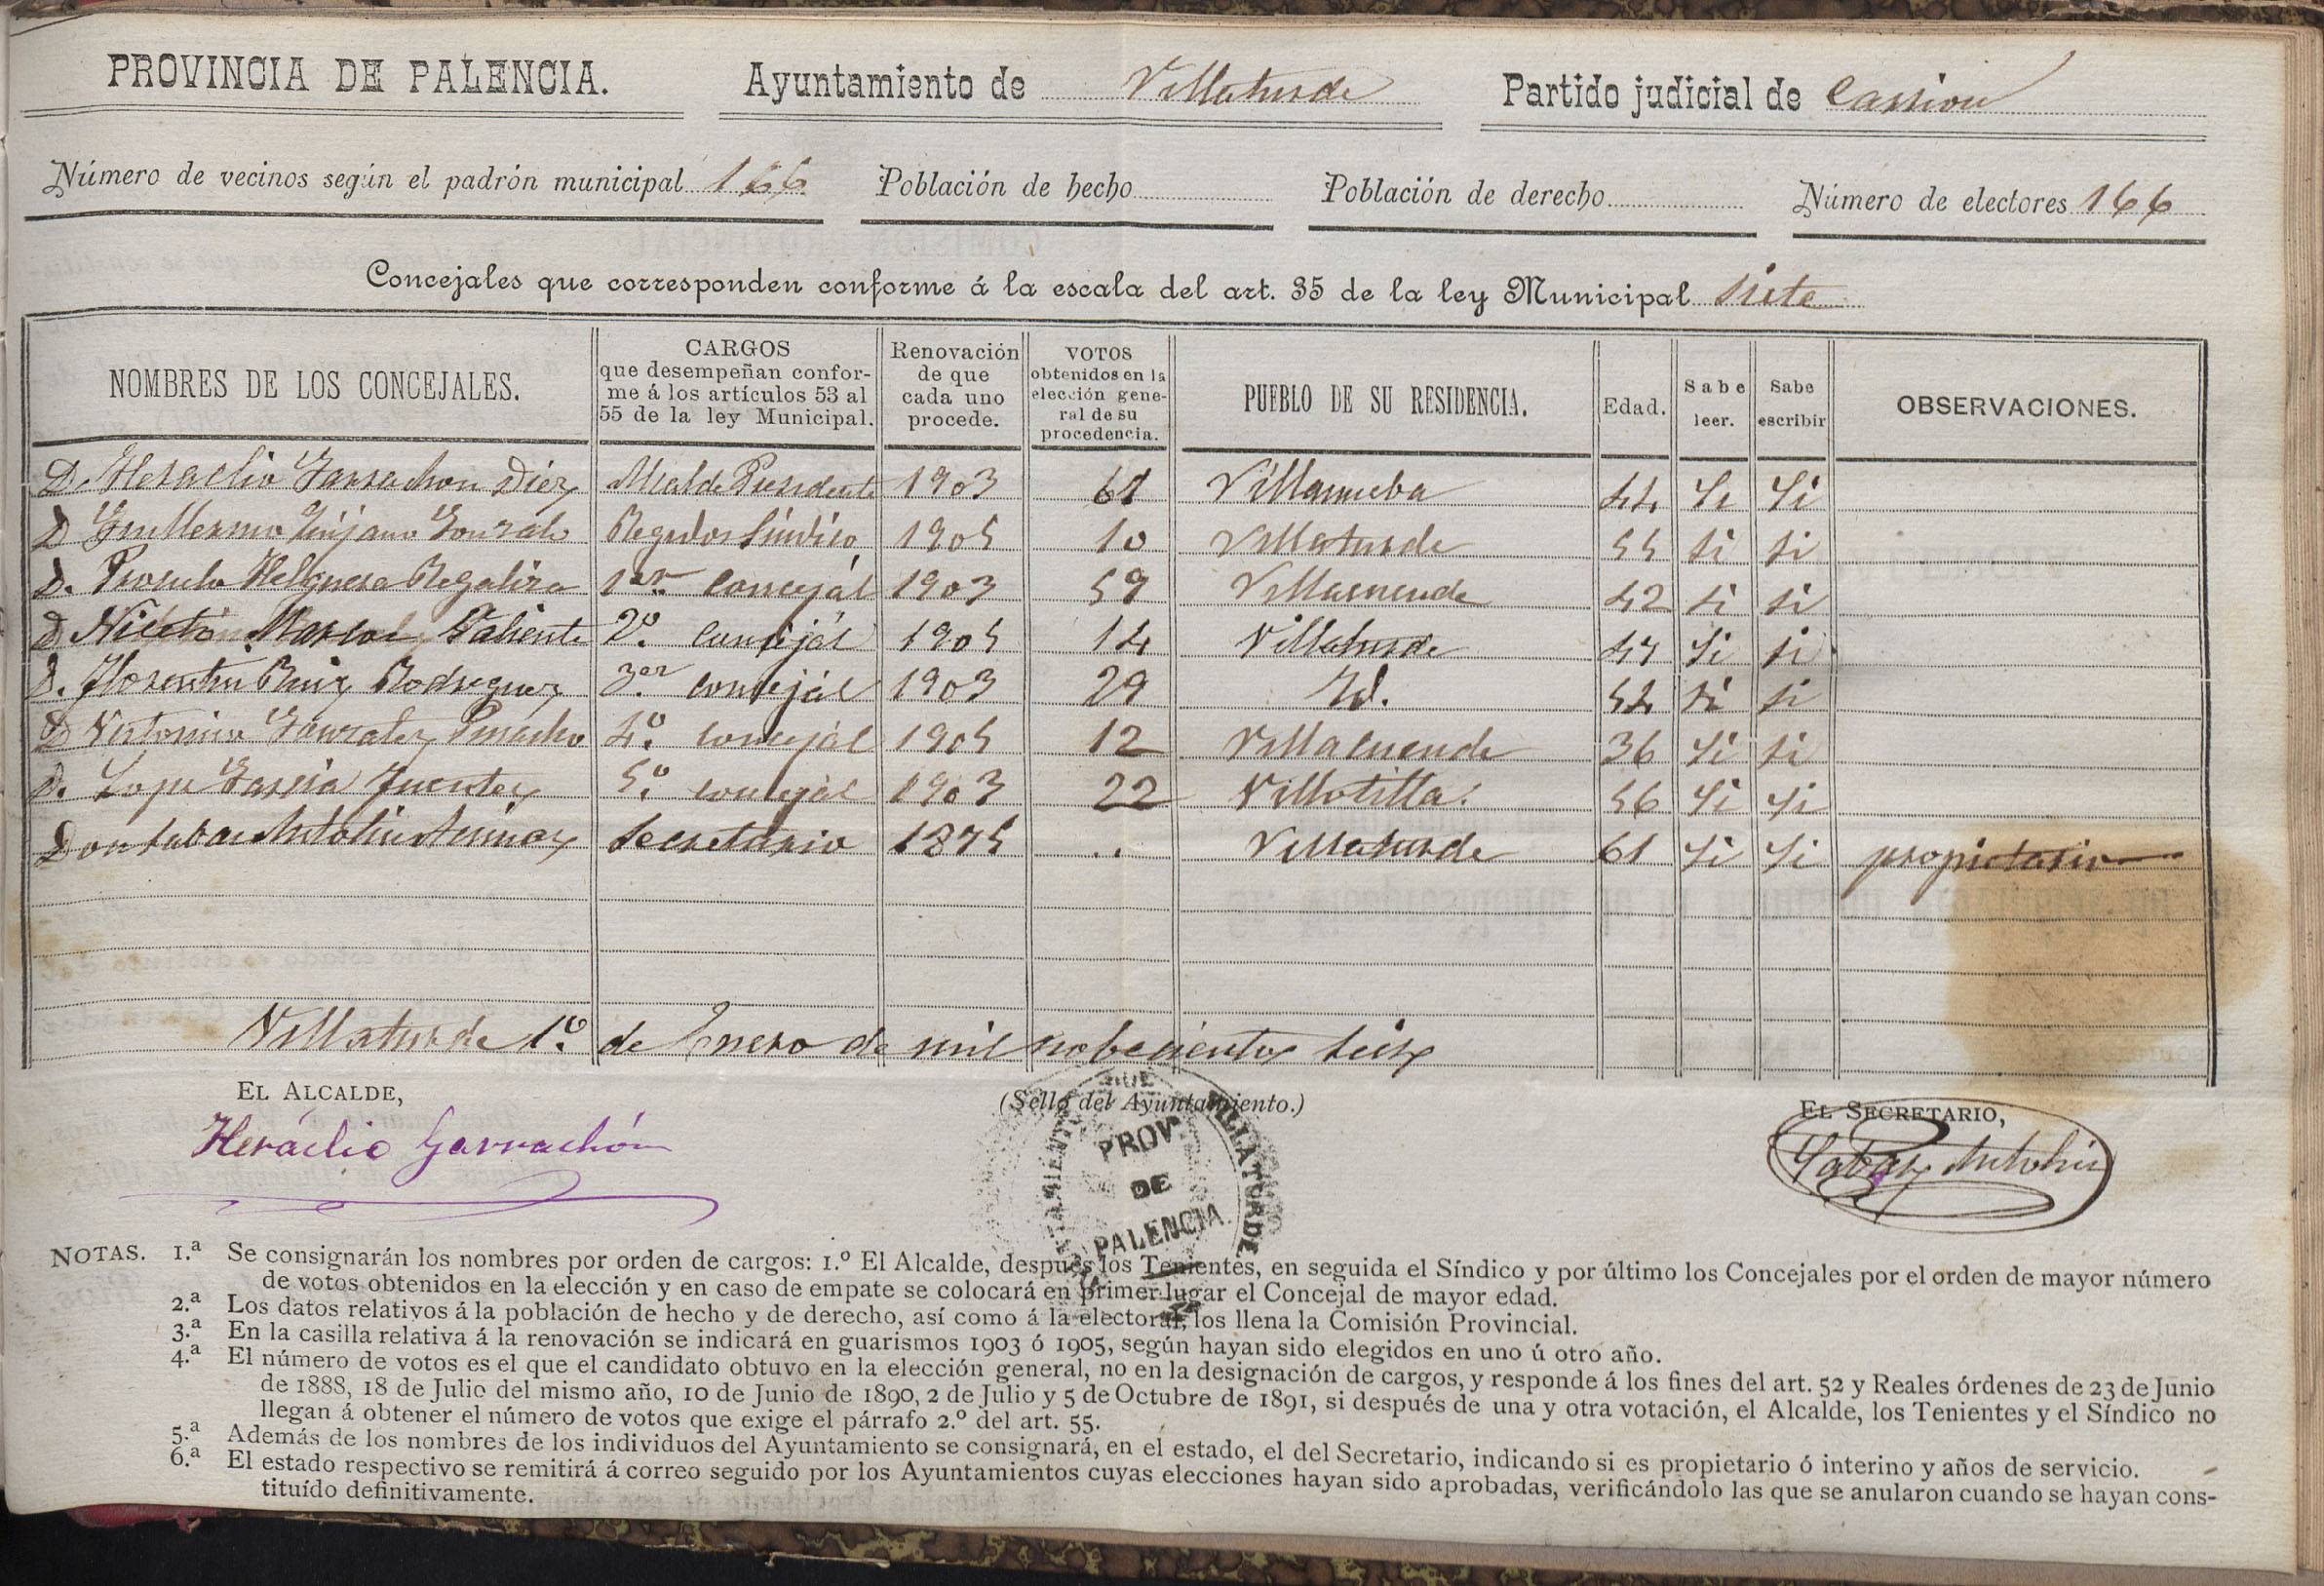 PROVINCIA DE PALENCIA. Ayuntamiento de Villaturde Partido judicial de Carrion
Número de vecinos según el padrón municipal 166 Población de hecho Población de derecho Número de electores 166
Concejales que corresponden conforme á la escala del art. 35 de la ley Municipal siete
NOMBRES DE LOS CONCEJALES. CARGOS que desempeñan conforme á los artículos 53 al 55 de la ley Municipal. Renovación de que cada uno procede. VOTOS obtenidos en la elección general de su procedencia. PUEBLO DE SU RESIDENCIA. Edad. Sabe leer. Sabe escribir OBSERVACIONES.
D. Heraclio Garrachon Diez Alcalde Presidente 1903 61 Villanueba 44 Si Si
D Guillermo Quijano Gonzalo Regidor Síndico 1905 10 Villaturde 55 si si
D. Helguera 1er concejál 1903 59 Villacuende 42 si si
D Niceto Valiente 2º. concejál 1905 14 Villaturde 47 Si si
D. Florentin Ruiz Rodriguez 3er. concejál 1903 29 Id. 54 si si
D Gonzalez 4º. concejál 1905 12 Villacuende 36 Si si
D. Lope Garcia Fuentes 5º. concejál 1903 22 Villotilla. 56 Si Si
Don Sabas Antolin Secretario 1875 .. Villaturde 61 Si Si propietario
Villaturde 1º. de Enero de mil nobecientos seis
EL ALCALDE, (Sello del Ayuntamiento.) EL SECRETARIO,
Heráclio Garrachón Sabas Antolin
AYUNTAMIENTO DE VILLATURDE
PROV.
DE
PALENCIA
NOTAS. 1.ª Se consignarán los nombres por orden de cargos: 1.º El Alcalde, después los Tenientes, en seguida el Síndico y por último los Concejales por el orden de mayor número
de votos obtenidos en la elección y en caso de empate se colocará en primer lugar el Concejal de mayor edad.
2.ª Los datos relativos á la población de hecho y de derecho, así como á la electoral, los llena la Comisión Provincial.
3.ª En la casilla relativa á la renovación se indicará en guarismos 1903 ó 1905, según hayan sido elegidos en uno ú otro año.
4.ª El número de votos es el que el candidato obtuvo en la elección general, no en la designación de cargos, y responde á los fines del art. 52 y Reales órdenes de 23 de Junio
de 1888, 18 de Julio del mismo año, 10 de Junio de 1890, 2 de Julio y 5 de Octubre de 1891, si después de una y otra votación, el Alcalde, los Tenientes y el Síndico no
llegan á obtener el número de votos que exige el párrafo 2.º del art. 55.
5.ª Además de los nombres de los individuos del Ayuntamiento se consignará, en el estado, el del Secretario, indicando si es propietario ó interino y años de servicio.
6.ª El estado respectivo se remitirá á correo seguido por los Ayuntamientos cuyas elecciones hayan sido aprobadas, verificándolo las que se anularon cuando se hayan cons-
tituído definitivamente.